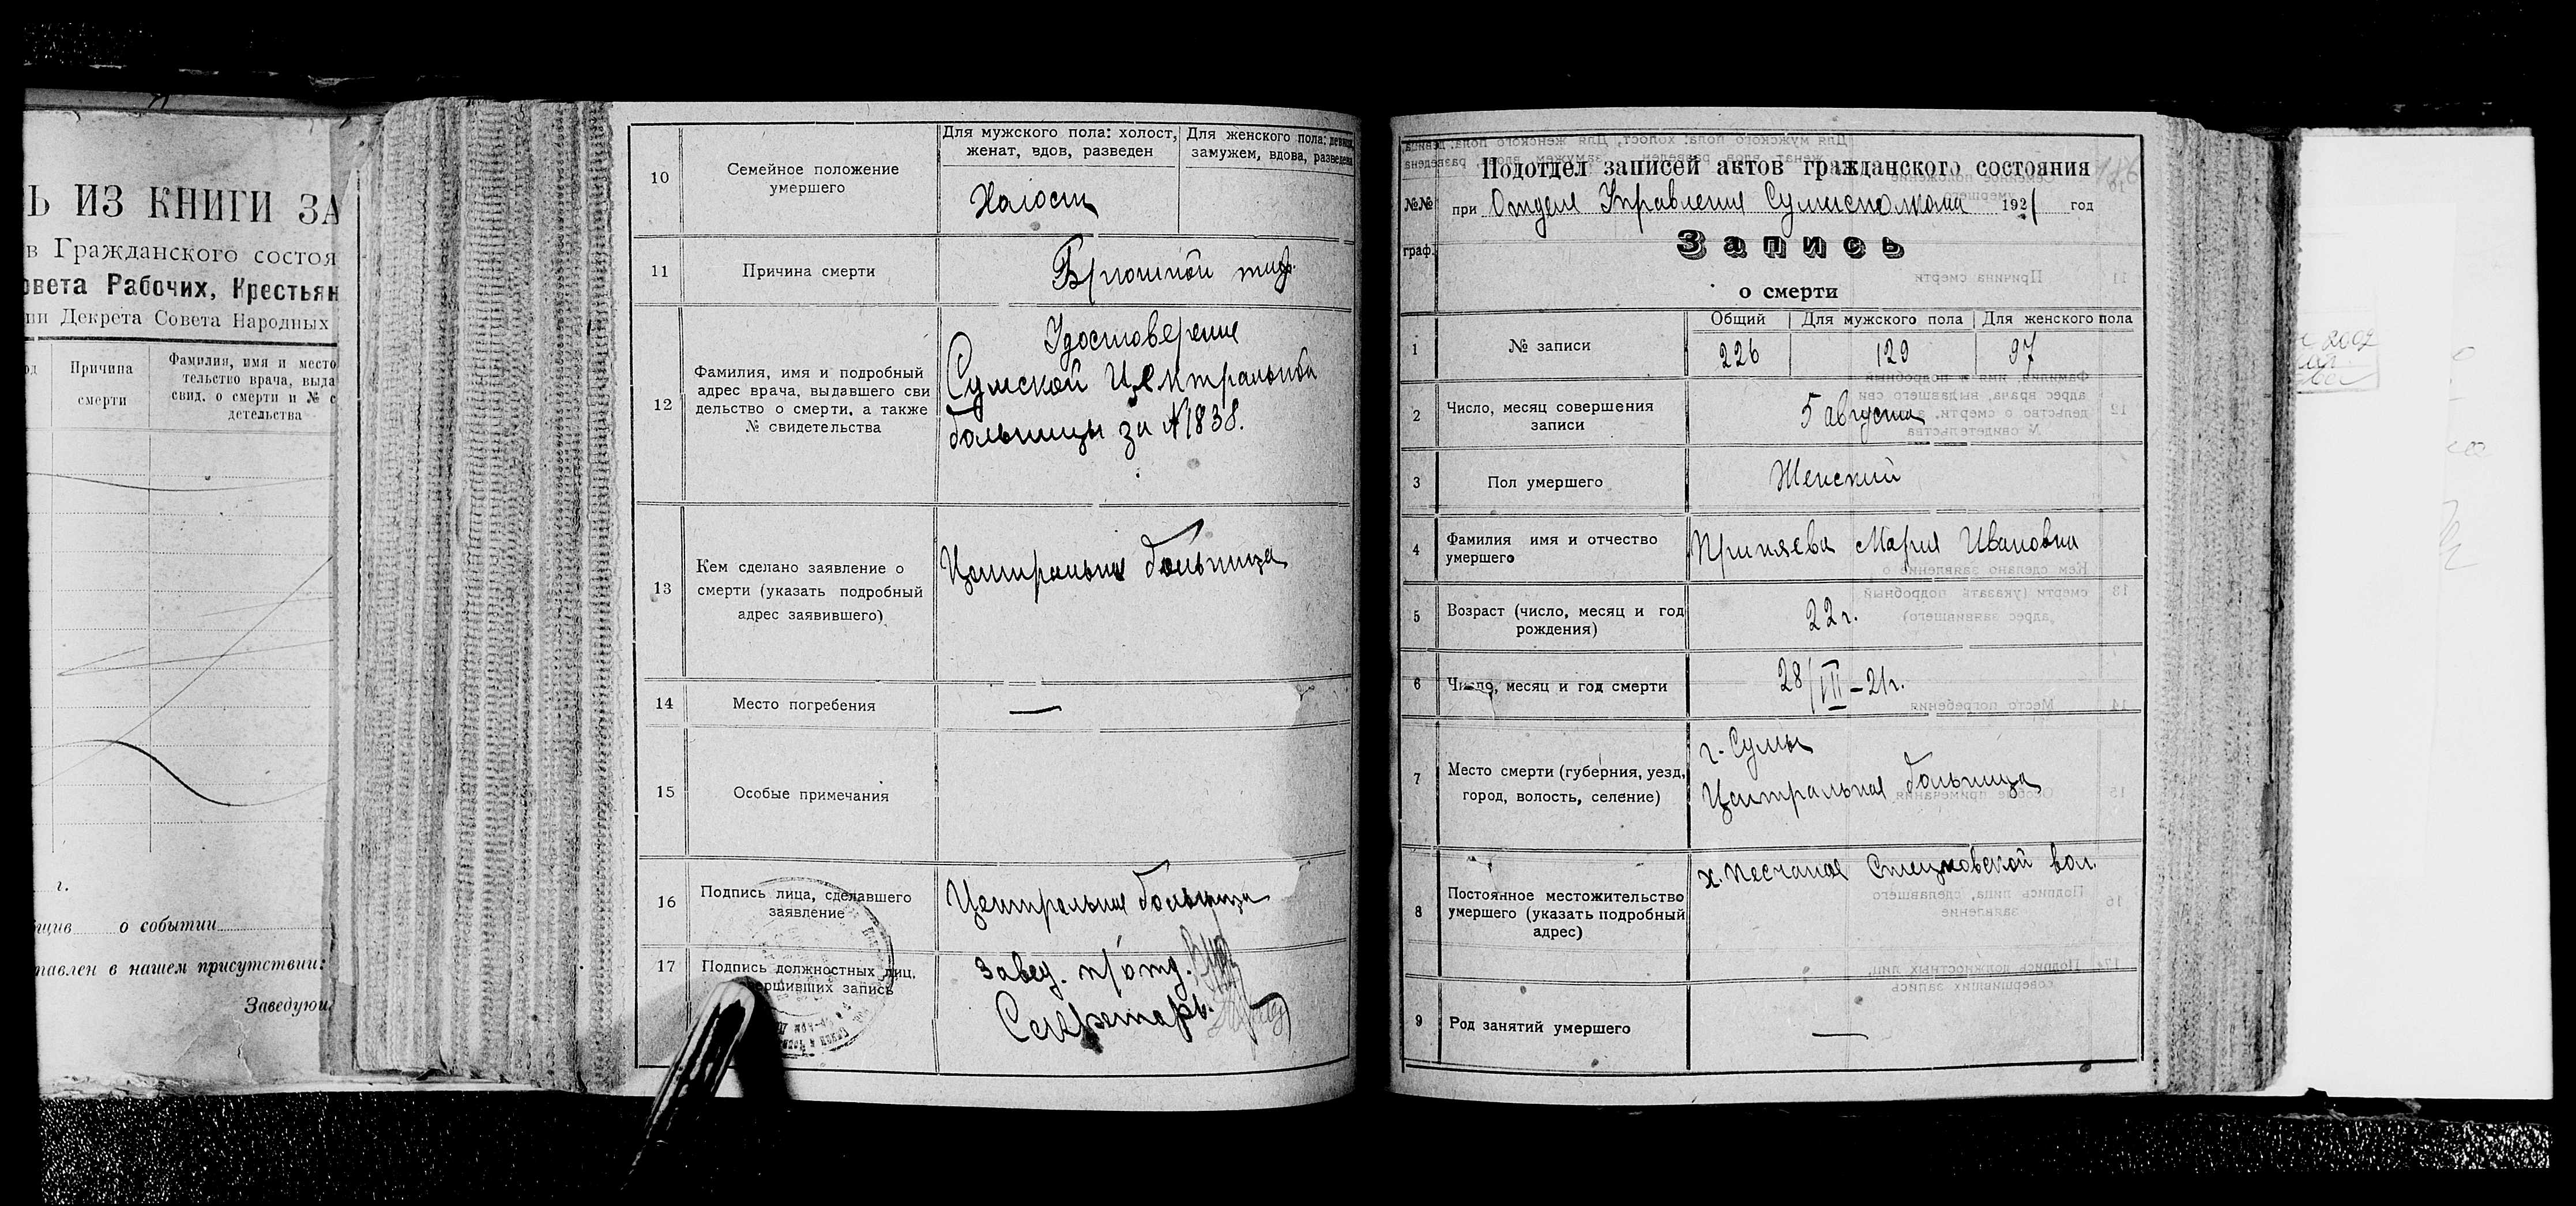 Ь ИЗ КНИГИ ЗА
в Гражданского состоя
овета Рабочих, Крестьян
ии Декрета Совета Народных
од
Причина
смерти
Фамилия, имя и место
тельство врача, выда
свид. о смерти и № с
детельства
г.
щив о событии
тавлен в нашем присутствии:
Заведующ
10
Семейное положение
умершего
Для мужского пола: холост,
женат, вдов, разведен
Для женского пола: девица,
замужем, вдова, разведена
Холост
11
Причина смерти
Брюшной тиф.
12
Фамилия, имя и подробный
адрес врача, выдавшего сви
дельство о смерти, а также
№ свидетельства
Удостоверение
Сумской Центральной
больницы за №1838.
13
Кем сделано заявление о
смерти (указать подробный
адрес заявившего)
Центральная больница
14
Место погребения
—
15
Особые примечания
16
Подпись лица, сделавшего
заявление
Центральная больница
17
Подпись должностных лиц,
ершивших запись
Завед. п/отд.
Секретарь.
Подотдел записей актов гражданского состояния
№№
граф.
при Отделе Управления Сумисполкома 1921 год
Запись
о смерти
1
№ записи
Общий
Для мужского пола
Для женского пола
226
129
97
2
Число, месяц совершения
записи
5 августа
3
Пол умершего
Женский
4
Фамилия имя и отчество
умершего
Приняева Мария Ивановна
5
Возраст (число, месяц и год
рождения)
22 г.
6
Число, месяц и год смерти
28/VII–21 г.
7
Место смерти (губерния, уезд,
город, волость, селение)
г. Сумы
Центральная больница
8
Постоянное местожительство
умершего (указать подробный
адрес)
х. Песчаная Стецковской вол.
9
Род занятий умершего
—